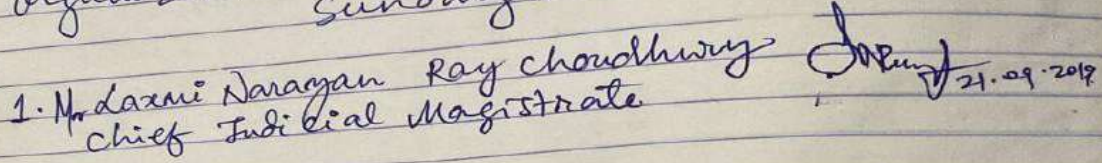 1. Mr Laxmi Narayan Ray Choudhury 21.09.2019
Chief Judicial Magistrate